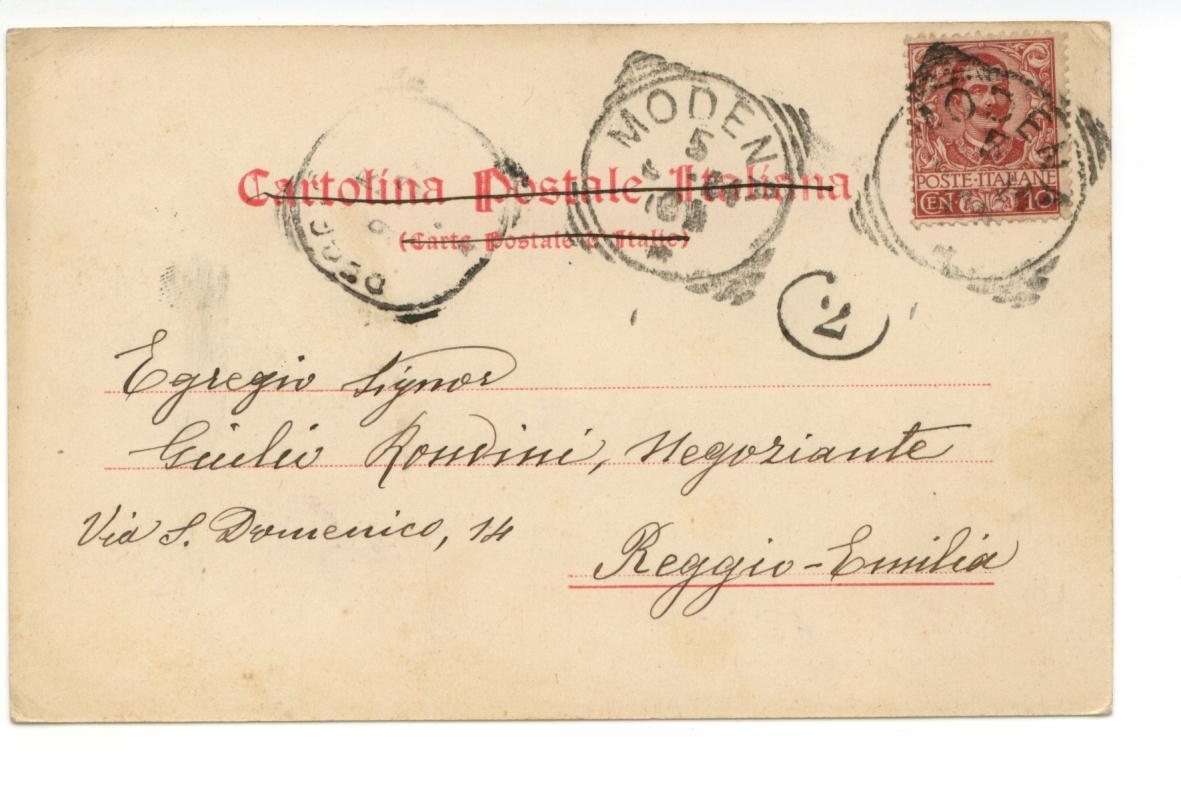 Cartolina Postale Italiana
(Carte Postale d'Italie)
MODEN
5
POSTE·ITALIANE
CENT. 10
2
Egregio Signor
Giulio Rondini, Negoziante
Via S. Domenico, 14
Reggio-Emilia